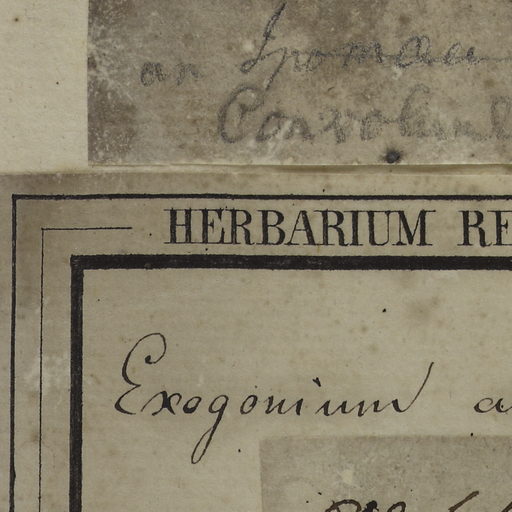 an Ipomaea
Convolvul
HERBARIUM RE
Exogonium a